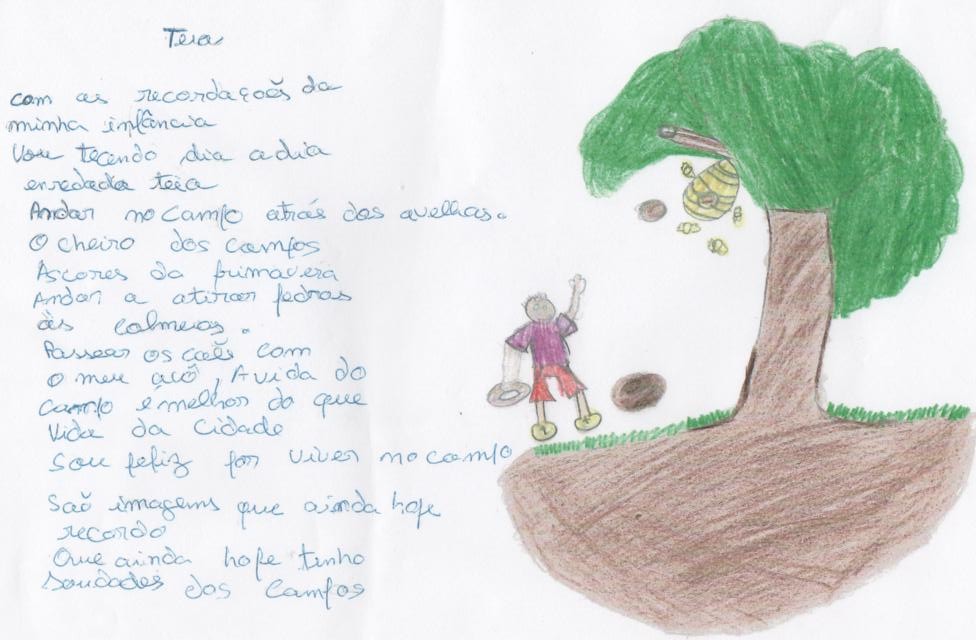 Teia
com as recordaçoẽs da
minha infância
Vou tecendo dia a dia
enredada teia
Andar no campo atrás das avelhas.
O cheiro dos campos
As cores da primavera
Andar a atirar pedras
às colmeias.
Passear os caẽs com
o meu avô, A vida do
campo é melhor do que
Vida da Cidade
Sou feliz por viver no campo
Saõ imagens que ainda hoje
recordo
Que ainda hoje tenho
Saudades dos campos